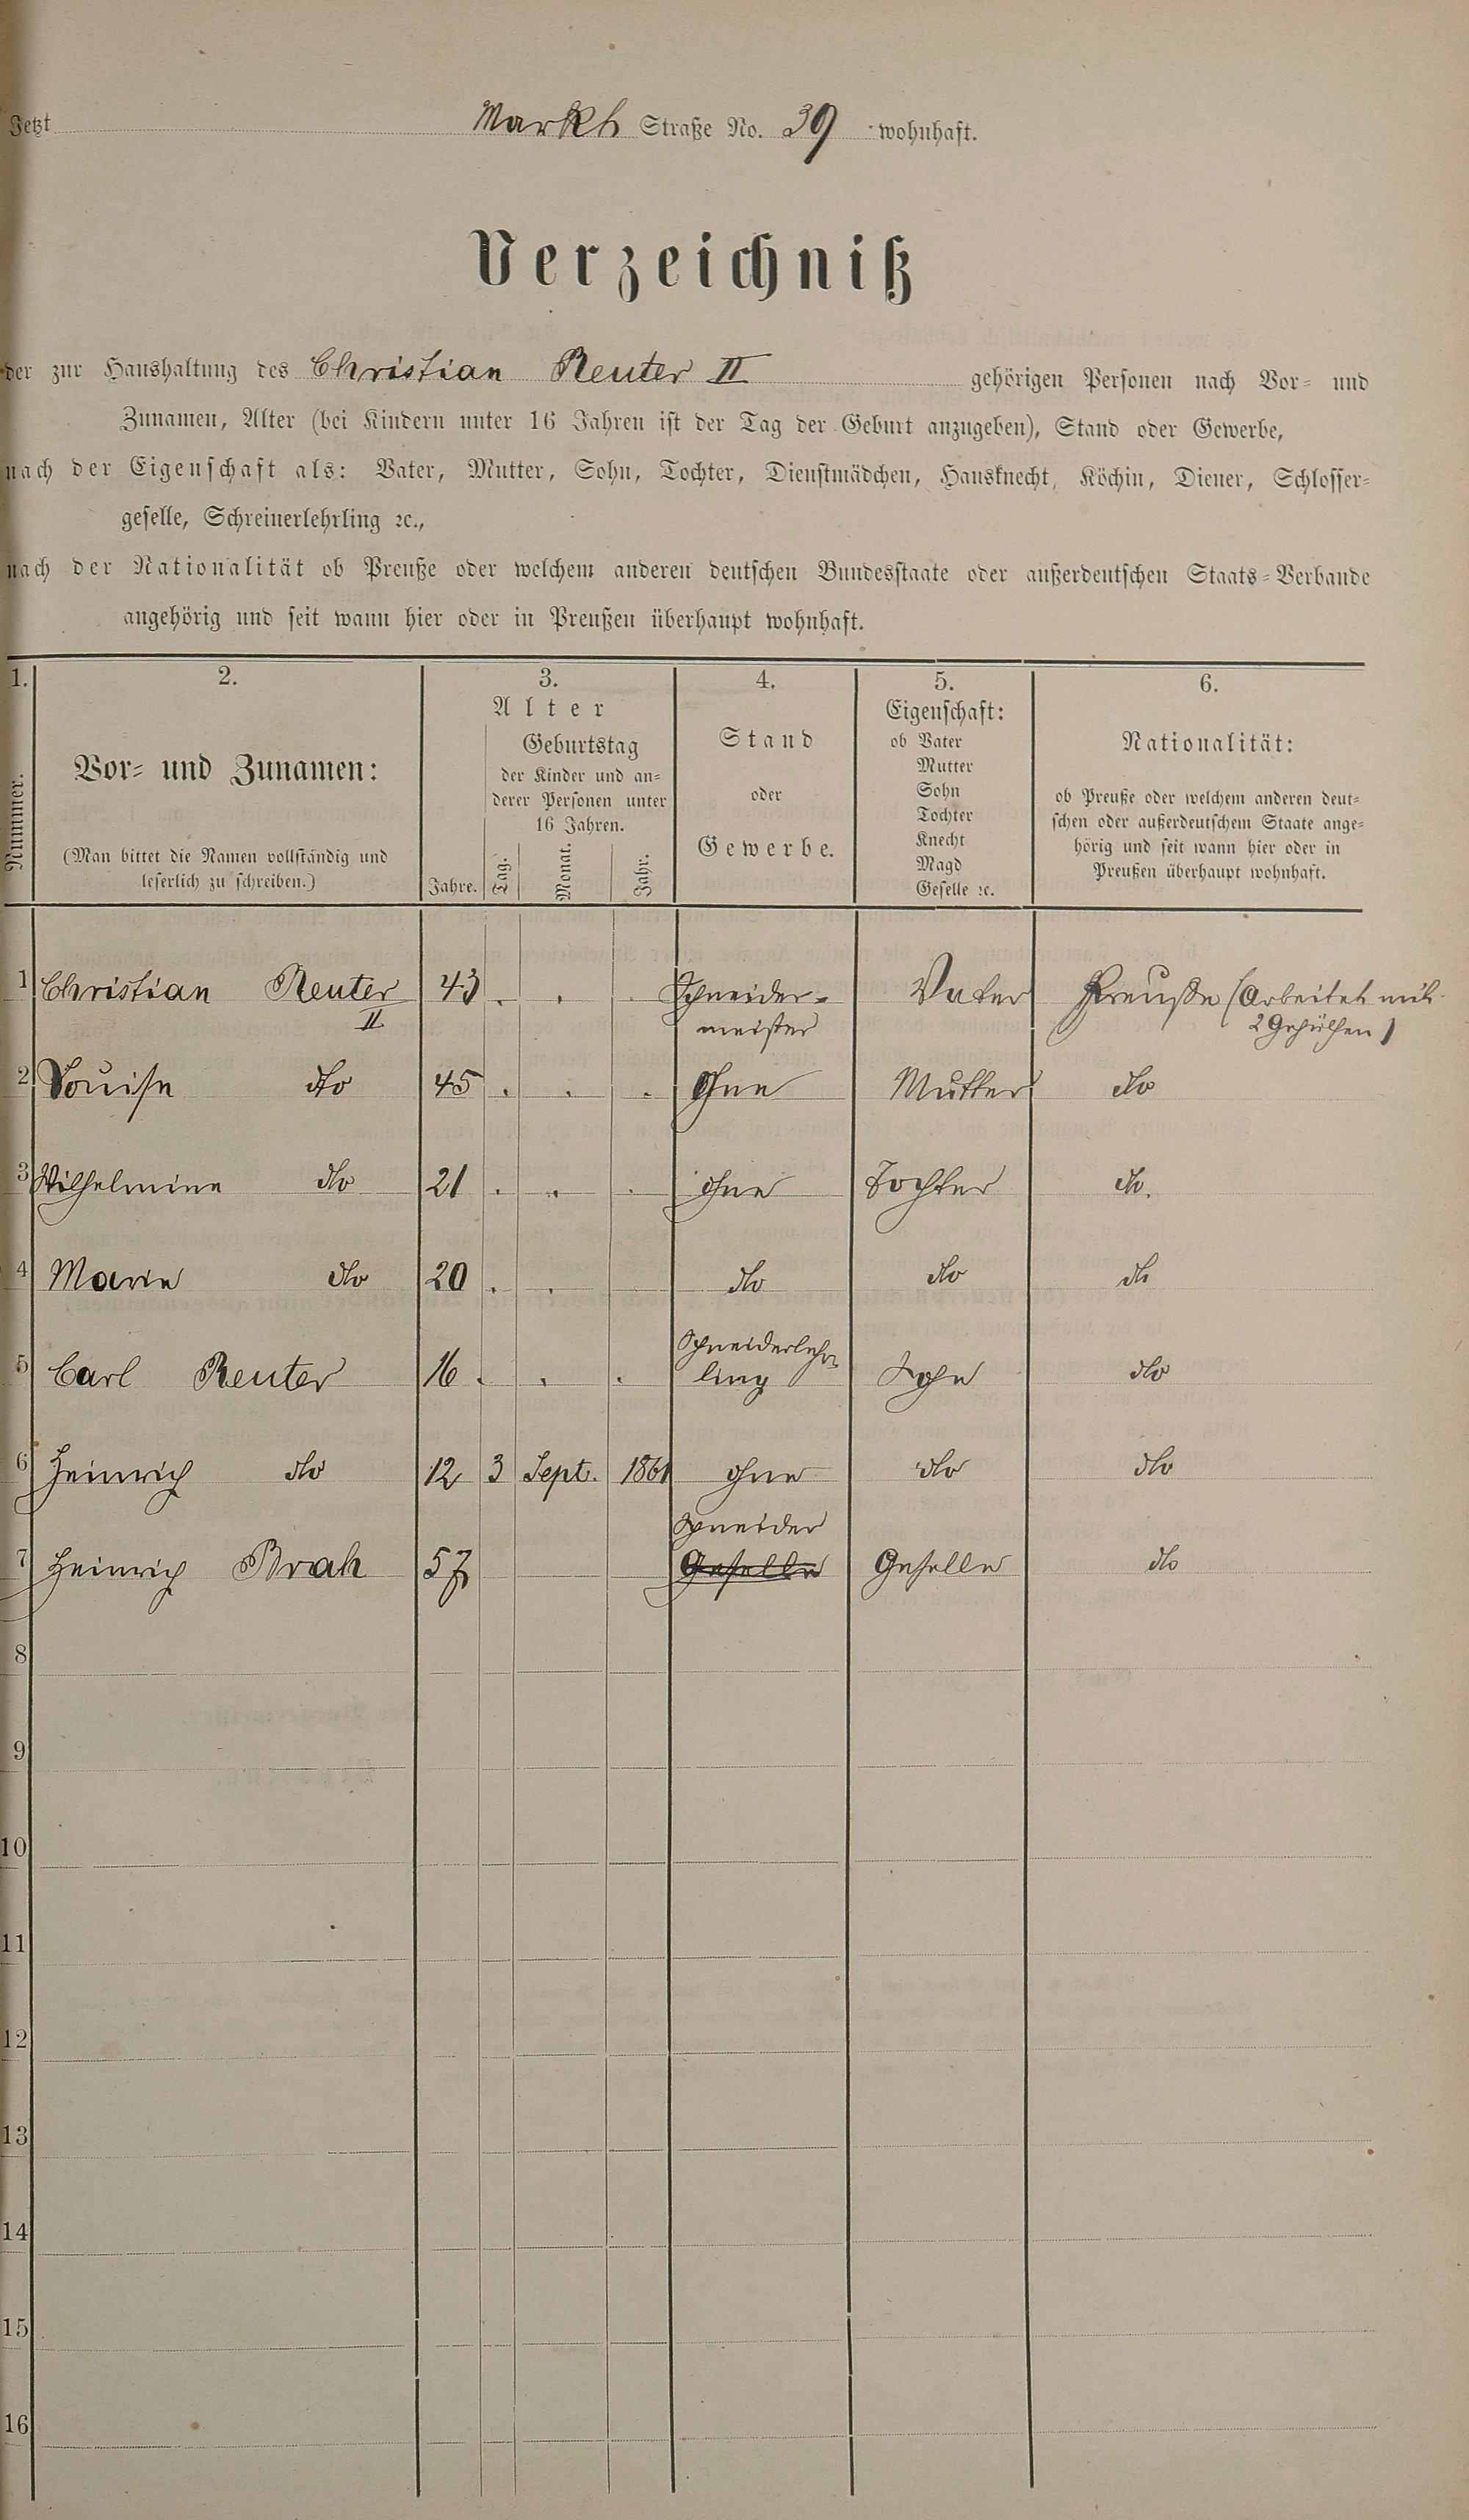 Jetzt Markt Straße No. 39 wohnhaft.
Verzeichniß
der zur Haushaltung des Christian Reuter II gehörigen Personen nach Vor- und
Zunamen, Alter (bei Kindern unter 16 Jahren ist der Tag der Geburt anzugeben), Stand oder Gewerbe,
nach der Eigenschaft als: Vater, Mutter, Sohn, Tochter, Dienstmädchen, Hausknecht, Köchin, Diener, Schlosser-
geselle, Schreinerlehrling ꝛc.,
nach der Nationalität ob Preuße oder welchem anderen deutschen Bundesstaate oder außerdeutschen Staats-Verbande
angehörig und seit wann hier oder in Preußen überhaupt wohnhaft.
1. 2. 3. 4. 5. 6.
Nummer.
Vor- und Zunamen:
(Man bittet die Namen vollständig und
leserlich zu schreiben.)
Alter
Geburtstag
der Kinder und an-
derer Personen unter
16 Jahren.
Jahre. Tag. Monat. Jahr.
Stand
oder
Gewerbe.
Eigenschaft:
ob Vater
Mutter
Sohn
Tochter
Knecht
Magd
Geselle ꝛc.
Nationalität:
ob Preuße oder welchem anderen deut-
schen oder außerdeutschem Staate ange-
hörig und seit wann hier oder in
Preußen überhaupt wohnhaft.
1 Christian Reuter 43 . . . Schneider- Vater Preuße (Arbeitet mit
II meister 2 Gehülfen)
2 Louise dto 45 . . . Ohne Mutter dto
3 Wilhelmine dto 21 . . . ohne Tochter dto.
4 Marie dto 20 . . dto dto dto
Schneiderlehr-
5 Carl Reuter 16 . . . ling Sohn dto
6 Heinrich dto 12 3 Sept. 1861 ohne dto dto
Schneider
7 Heinrich Brah 57 Geselle Geselle dto
8
9
10
11
12
13
14
15
16